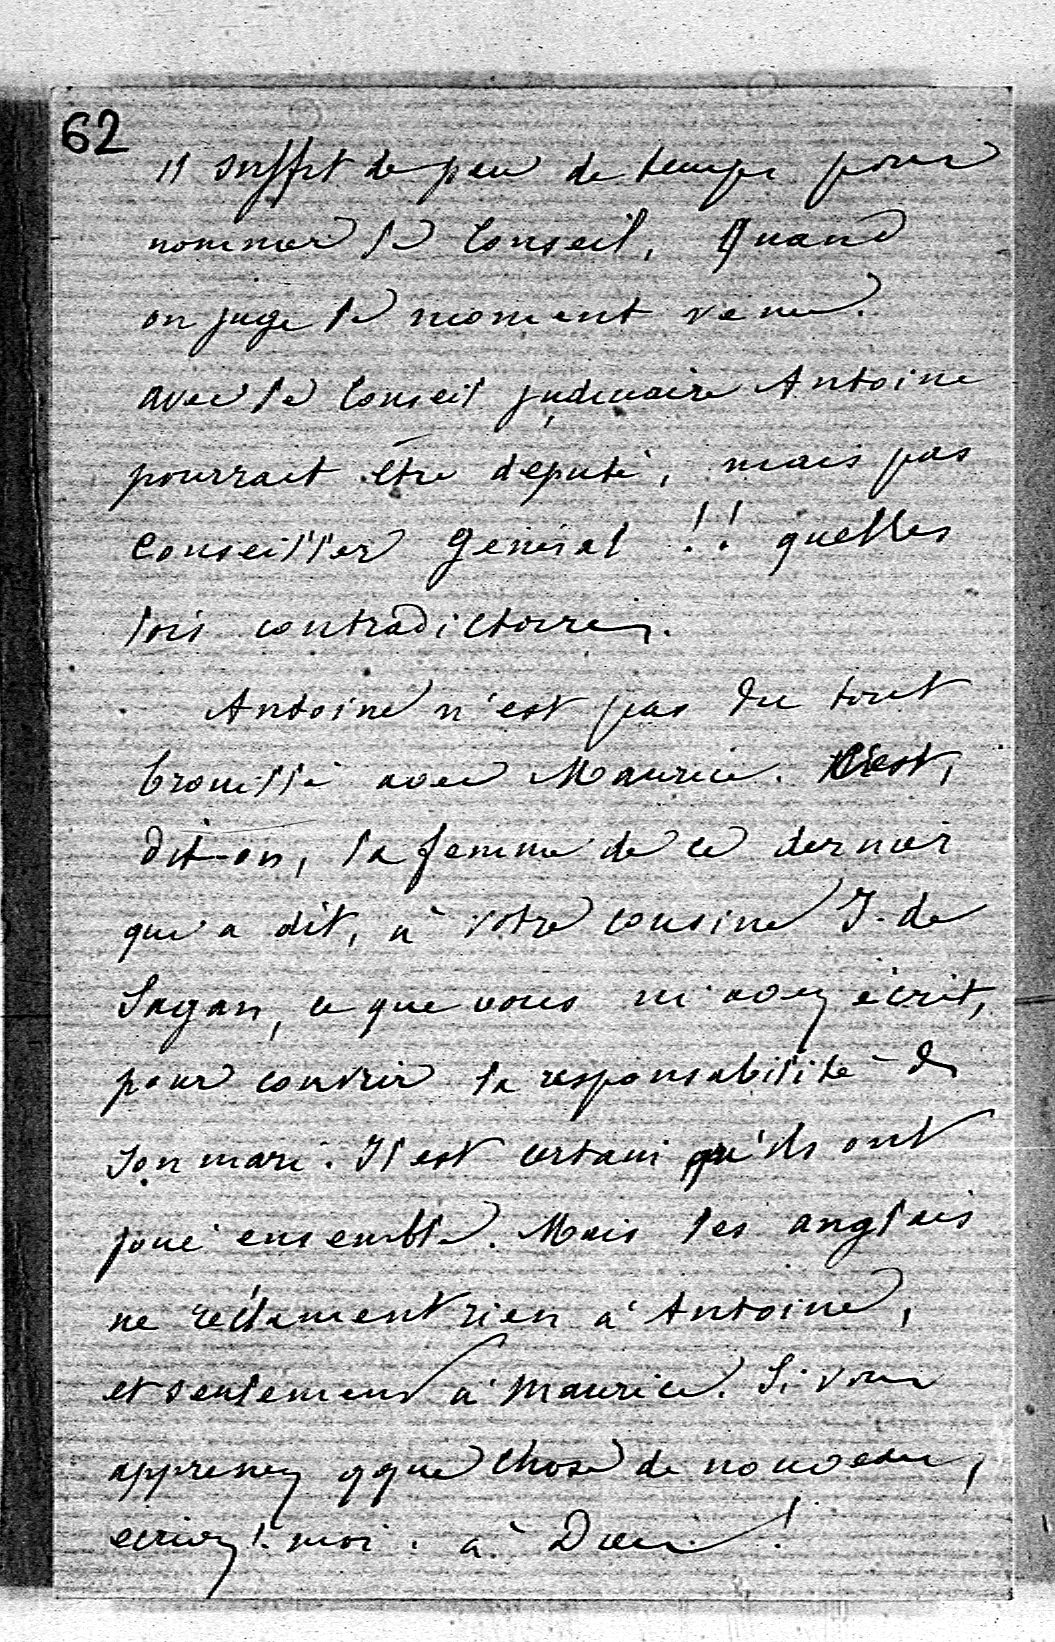 62
il suffit de peu de temps pour
nommer le Conseil, Quand
on juge le moment venu.
avec le Conseil judiciaire Antoine
pourrait être député, mais pas
Conseiller Général !! quelles
lois contradictoires.
Antoine n'est pas du tout
brouillé avec Maurice. C'est,
dit-on, la femme de ce dernier
qui a dit, à votre cousine J. de
Sagan, ce que vous m'avez écrit,
pour couvrir la responsabilité de
son mari. Il est certain qu'ils ont
joué ensemble. Mais les anglais
ne réclament rien à Antoine,
et seulement à Maurice. Si vous
apprenez qque chose de nouveau,
ecrivez! moi. à Dieu !